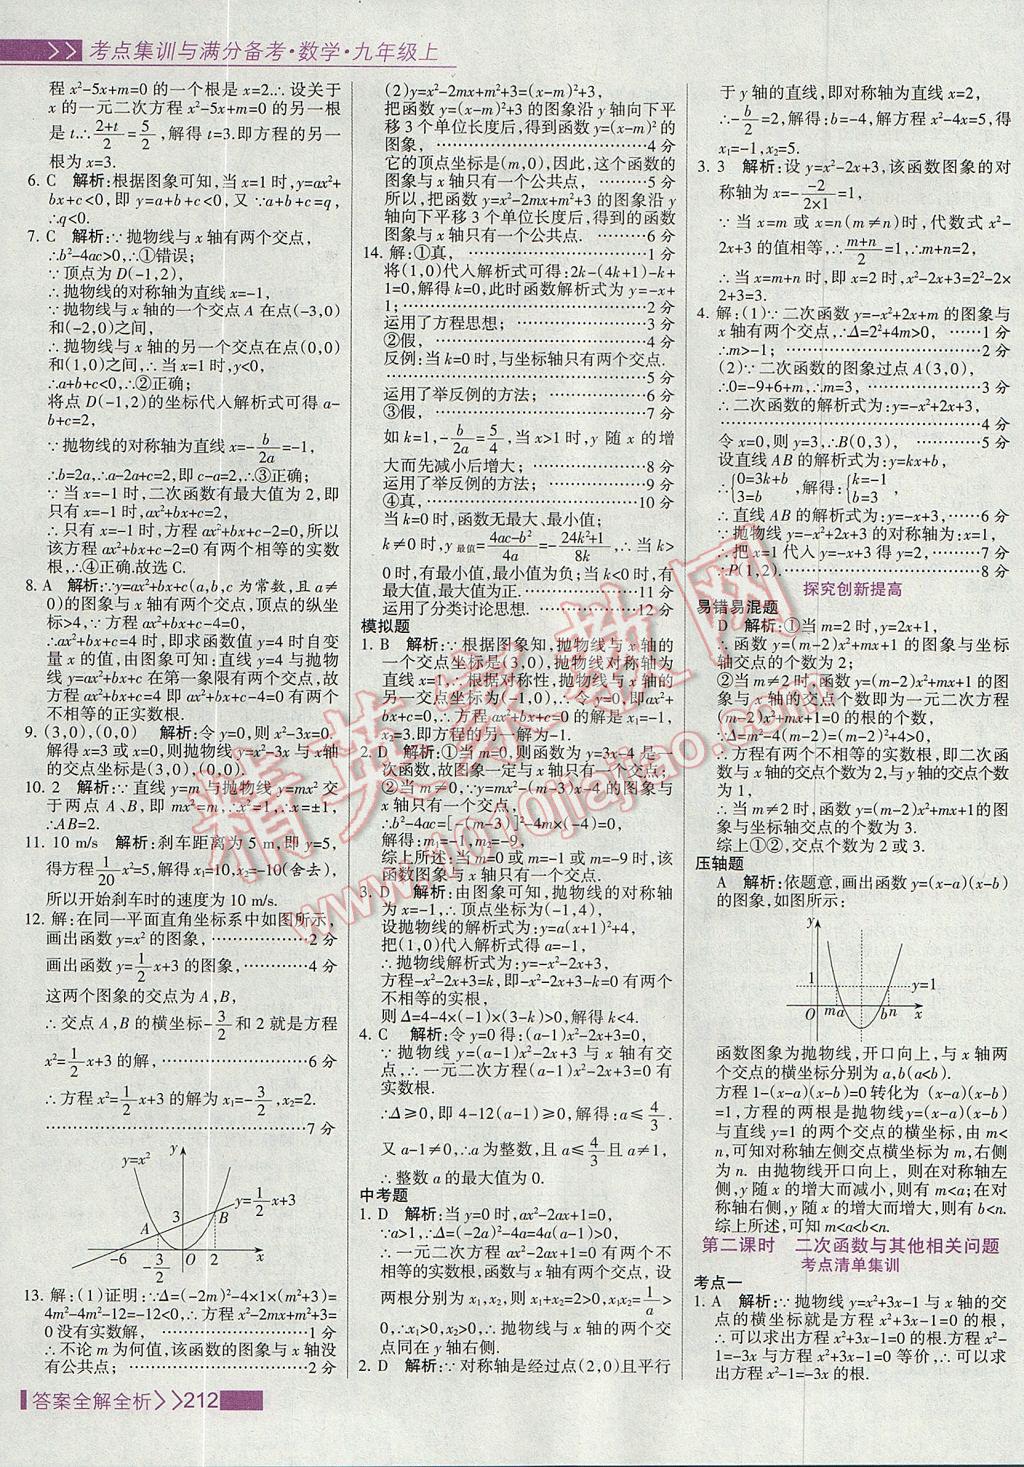 考点集训与满分备考·数学·九年级上
程 x²-5x+m=0 的一个根是 x=2.∴设关于
x 的一元二次方程 x²-5x+m=0 的另一根
是 t.∴(2+t)/2=5/2,解得 t=3.即方程的另一
根为 x=3.
6. C 解析:根据图象可知,当 x=1 时,y=ax²+
bx+c<0,即 y=a+b+c<0,又∵a+b+c=q,
∴q<0.
7. C 解析:∵抛物线与 x 轴有两个交点,
∴b²-4ac>0,∴①错误;
∵顶点为 D(-1,2),
∴抛物线的对称轴为直线 x=-1,
∵抛物线与 x 轴的一个交点 A 在点(-3,0)
和(-2,0)之间,
∴抛物线与 x 轴的另一个交点在点(0,0)
和(1,0)之间,∴当 x=1 时,y<0,
∴a+b+c<0,∴②正确;
将点 D(-1,2)的坐标代入解析式可得 a-
b+c=2,
∵抛物线的对称轴为直线 x=-b/2a=-1,
∴b=2a,∴a-2a+c=2,即 c-a=2,∴③正确;
∵当 x=-1 时,二次函数有最大值为 2,即
ax²+bx+c=2,
∴只有 x=-1 时,方程 ax²+bx+c-2=0,所以
该方程 ax²+bx+c-2=0 有两个相等的实数
根,∴④正确.故选 C.
8. A 解析:∵y=ax²+bx+c(a,b,c 为常数,且 a≠
0)的图象与 x 轴有两个交点,顶点的纵坐
标>4,∵方程 ax²+bx+c-4=0,
∴ax²+bx+c=4 时,即求函数值 y=4 时自变
量 x 的值,由图象可知:直线 y=4 与抛物
线 y=ax²+bx+c 在第一象限有两个交点,故
方程 ax²+bx+c=4 即 ax²+bx+c-4=0 有两个
不相等的正实数根.
9. (3,0),(0,0) 解析:令 y=0,则 x²-3x=0
解得 x=3 或 x=0,则抛物线 y=x²-3x 与 x 轴
的交点坐标是(3,0),(0,0).
10. 2 解析:∵直线 y=m 与抛物线 y=mx² 交
于两点 A、B,即 mx²=m,∴x²=1,∴x=±1,
∴AB=2.
11. 10 m/s 解析:刹车距离为 5 m,即 y=5,
得方程 1/20x²=5,解得 x₁=10,x₂=-10(舍去),
所以开始刹车时的速度为 10 m/s.
12. 解:在同一平面直角坐标系中如图所示,
画出函数 y=x² 的图象,……2 分
画出函数 y=1/2x+3 的图象,……4 分
这两个图象的交点为 A,B,
∴交点 A,B 的横坐标-3/2和 2 就是方程
x²=1/2x+3 的解,……6 分
∴方程 x²=1/2x+3 的解为 x₁=-3/2,x₂=2.
……7 分
y=x² y y=1/2x+3
A 3 B
-6 -3/2 O 2 x
13. 解:(1)证明:∵Δ=(-2m)²-4×1×(m²+3)=
4m²-4m²-12=-12<0,∴方程 x²-2mx+m²+3=
0 没有实数解,……1 分
∴不论 m 为何值,该函数的图象与 x 轴没
有公共点;……2 分
(2)y=x²-2mx+m²+3=(x-m)²+3,
把函数 y=(x-m)²+3 的图象沿 y 轴向下平
移 3 个单位长度后,得到函数 y=(x-m)² 的
图象,……4 分
它的顶点坐标是(m,0),因此,这个函数的
图象与 x 轴只有一个公共点,……5 分
所以,把函数 y=x²-2mx+m²+3 的图象沿 y
轴向下平移 3 个单位长度后,得到的函数
图象与 x 轴只有一个公共点.……6 分
14. 解:①真,……1 分
将(1,0)代入解析式可得:2k-(4k+1)-k+
1=0,解得 k=0,此时函数解析式为 y=-x+
1;……2 分
运用了方程思想;……3 分
②假,……4 分
反例:当 k=0 时,与坐标轴只有两个交点.
……5 分
运用了举反例的方法;……6 分
③假,……7 分
如 k=1,-b/2a=5/4,当 x>1 时,y 随 x 的增
大而先减小后增大;……8 分
运用了举反例的方法;……9 分
④真,……10 分
当 k=0 时,函数无最大、最小值;
k≠0 时,y最值=(4ac-b²)/4a=-(24k²+1)/8k,∴当 k>
0 时,有最小值,最小值为负;当 k<0 时,有
最大值,最大值为正.……11 分
运用了分类讨论思想.……12 分
模拟题
1. B 解析:∵根据图象知,抛物线与 x 轴的
一个交点坐标是(3,0),抛物线对称轴为
直线 x=1.∴根据对称性,抛物线与 x 轴的
另一交点坐标为(-1,0),∴令 y=0,即 -x²+
bx+c=0,∴方程 -x²+bx+c=0 的解是 x₁=-1,
x₂=3.即方程的另一个解为-1.
2. D 解析:①当 m=0,则函数为 y=3x-4 是一
次函数,故图象一定与 x 轴只有一个交点;
②当 m≠0,∵y=mx²-(m-3)x-4 的图象与
x 轴只有一个交点,
∴b²-4ac=[-(m-3)]²-4m×(-4)=0,
解得:m₁=-1,m₂=-9,
综上所述:当 m=0 或 m=-1 或 m=-9 时,该
函数图象与 x 轴只有一个交点.
3. D 解析:由图象可知,抛物线的对称轴
为 x=-1,∴顶点坐标为(-1,4),
设抛物线的解析式为:y=a(x+1)²+4,
把(1,0)代入解析式得 a=-1,
∴抛物线解析式为:y=-x²-2x+3,
方程-x²-2x+3=k,即-x²-2x+3-k=0 有两个
不相等的实根,
则 Δ=4-4×(-1)×(3-k)>0,解得 k<4.
4. C 解析:令 y=0 得:(a-1)x²-2x+3=0,
∵抛物线 y=(a-1)x²-2x+3 与 x 轴有交
点,∴一元二次方程(a-1)x²-2x+3=0 有
实数根.
∴Δ≥0,即 4-12(a-1)≥0,解得:a≤4/3.
又 a-1≠0,∴a 为整数,且 a≤4/3且 a≠1,
∴整数 a 的最大值为 0.
中考题
1. D 解析:当 y=0 时,ax²-2ax+1=0,
∵a>1,∴Δ=(-2a)²-4a=4a(a-1)>0,
∴一元二次方程 ax²-2ax+1=0 有两根,设
两根分别为 x₁,x₂,则 x₁+x₂=2>0,x₁x₂=1/a
>0,∴x₁>0,x₂>0,∴抛物线与 x 轴的两个交
点同在 y 轴右侧.
2. D 解析:∵对称轴是经过点(2,0)且平行
于 y 轴的直线,即对称轴为直线 x=2,
∴-b/2=2,解得:b=-4,解方程 x²-4x=5,得
x₁=-1,x₂=5.
3. 3 解析:设 y=x²-2x+3,该函数图象的对
称轴为 x=-(-2)/(2×1)=1,
∵当 x=m 或 x=n(m≠n)时,代数式 x²-
2x+3 的值相等,∴(m+n)/2=1,∴m+n=2,
∴当 x=m+n 时,即 x=2 时,x²-2x+3=2²-2×
2+3=3.
4. 解:(1)∵二次函数 y=-x²+2x+m 的图象与
x 轴有两个交点,∴Δ=2²+4m>0,……1 分
∴m>-1;……2 分
(2)∵二次函数的图象过点 A(3,0),
∴0=-9+6+m,∴m=3,……3 分
∴二次函数的解析式为:y=-x²+2x+3,
……4 分
令 x=0,则 y=3,∴B(0,3),……5 分
设直线 AB 的解析式为:y=kx+b,
∴{0=3k+b 3=b ,解得:{k=-1 b=3 ,
∴直线 AB 的解析式为:y=-x+3,……6 分
∵抛物线 y=-x²+2x+3 的对称轴为:x=1,
∴把 x=1 代入 y=-x+3 得 y=2,……7 分
∴P(1,2).……8 分
探究创新提高
易错易混题
D 解析:①当 m=2 时,y=2x+1,
∴函数 y=(m-2)x²+mx+1 的图象与坐标
轴交点的个数为 2;
②当 m≠2 时,函数 y=(m-2)x²+mx+1 的图
象与 x 轴的交点个数即为一元二次方程
(m-2)x²+mx+1=0 的根的个数,
∵Δ=m²-4(m-2)=(m-2)²+4>0,
∴方程有两个不相等的实数根,即二次函
数与 x 轴的交点个数为 2,与 y 轴的交点个数
为 1,
∴当 m≠2 时,函数 y=(m-2)x²+mx+1 的图
象与坐标轴交点的个数为 3.
综上①②,交点个数为 2 或 3.
压轴题
A 解析:依题意,画出函数 y=(x-a)(x-b)
的图象,如图所示:
y
1 y=1
O m a b n x
函数图象为抛物线,开口向上,与 x 轴两
个交点的横坐标分别为 a,b(a<b).
方程 1-(x-a)(x-b)=0 转化为 (x-a)(x-b)
=1,方程的两根是抛物线 y=(x-a)(x-b)
与直线 y=1 的两个交点的横坐标,由 m<
n,可知对称轴左侧交点横坐标为 m,右侧
为 n. 由抛物线开口向上, 则在对称轴左
侧,y 随 x 的增大而减小,则有 m<a;在对
称轴右侧,y 随 x 的增大而增大,则有 b<n.
综上所述,可知 m<a<b<n.
第二课时 二次函数与其他相关问题
考点清单集训
考点一
1. A 解析:∵抛物线 y=x²+3x-1 与 x 轴的交
点的横坐标就是方程 x²+3x-1=0 的根,
∴可以求出方程 x²+3x-1=0 的根.方程 x²-
1=-3x 与方程 x²+3x-1=0 等价,∴可以求
出方程 x²-1=-3x 的根.
答案全解全析>>212
精英家教网
www.1010jiajiao.com